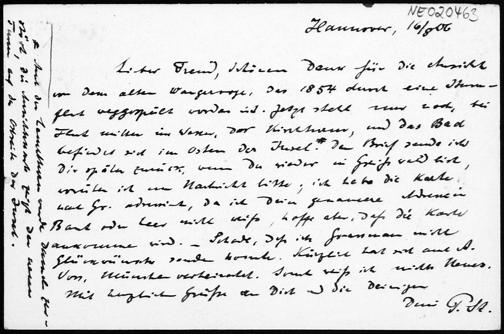 NE020463
Hannover, 16/8 06
Lieber Freund, schönen Dank für die Ansicht
von dem alten Wangerooge, das 1854 durch eine Sturm-
flut weggespült worden ist. Jetzt steht nur noch, bei
Flut mitten im Wasser, der Kirchturm, und das Bad
befindet sich im Osten der Insel.* Den Brief sende ich
Dir später zurück, wenn Du wieder in bist,
worüber ich um Nachricht bitte; ich habe die Karte
nach Gr. adressirt, da ich Dein genauere Adresse in
Bank oder Leer nicht weiß, hoffe aber, daß die Karte
ankommen wird. – Schade, daß ich nicht
Glückwünsche senden konnte. Kürzlich hat sich auch A.
Voss, München verheiratet. Sonst weiß ich nichts Neues.
Mit herzlichen Grüßen an Dich und die Deinigen
Dein P. St.
* Auch der wurde
zerstört, die Ansichtskarte zeigt den neuen
Turm auf der Ostseite der Insel.